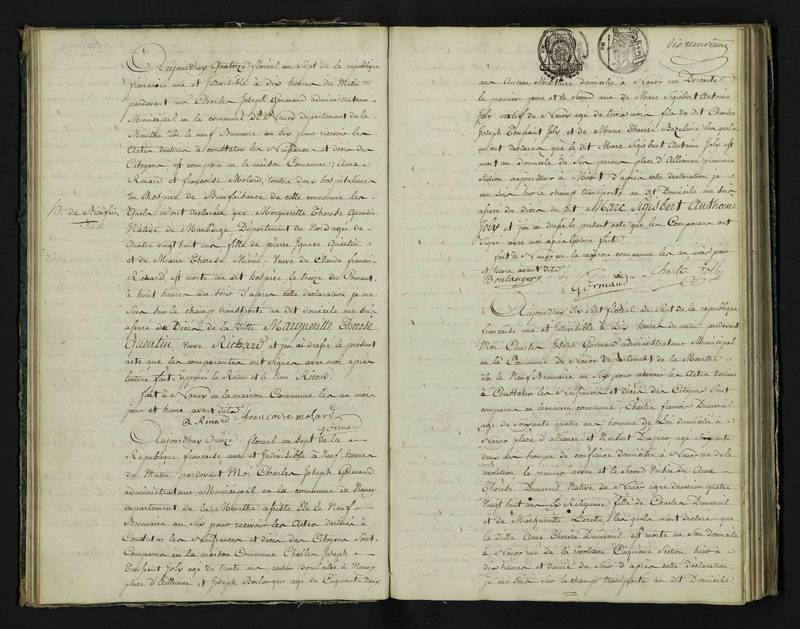 Aujourd'huy Quatorze floreal an sept de la republique
francoise une et Indivisible à dix heures du Matin
pardevant moi Charles Joseph Gormand administrateur
Municipal en la commune de Nancy departement de la
Meurthe élu le neuf Brumaire an six pour recevoir les
Actes destinés à constater les Naissances et décès des
Citoyens est comparu en la maison Commune, Anne
Renard et françoise Molard, toutes deux hospitalieres
au hospice de Bienfaisance de cette commune les
h. de Bienfce.
Quels m'ont declarés que Marguerite Therese Quentin
Native de Maubeuge Departement du Nord agée de
Quatre vingt huit ans fille de pierre Ignace Quentin
et de Marie Therese Veuve de Claude francois
Richard, est morte au dit hospice le treize du Courant
à huit heures du soir d'apres cette déclaration je me
suis sur le champ transporté au dit domicile me suis
assuré du Décès de la ditte Margueritte Therese
Quentin veuve Richard et j'en ai dressé le present
acte que les comparantes ont signés avec moi après
lecture faite
fait à Nancy en la maison Commune les an mois
jour et heure avant dits
A Renard francoise molard
Gormand
Aujourd'huy Quinze floreal an sept de la
Republique françoise une et Indivisible à Neuf heures
du Matin pardevant Moi Charles Joseph Gormand
administrateur Municipal en la commune de Nancy
departement de la Meurthe élu le Neuf
Brumaire an six pour recevoir les Actes destinés à
Constater les Naissances et décès des Citoyens Sont
Comparus en la maison Commune Charles Joseph
Joly age de trente ans rentier domicilié à Nancy
place d'Alliance et Joseph Boulanger age de Cinquante deux
ans Ancien Militaire domicilié à Nancy rue
le premier pere et le Second ami de Marc Sigisbert Antoine
Joly natif de Nancy age de trois mois fils du dit Charles
Joseph Joly et de Marie Therese Bazelaire les quels
m'ont déclarés que le dit Marc Sigisbert Antoine Joly est
mort au domicile de ses parens place d'Alliance premiere
Section aujourd'huy à Minuit d'après cette déclaration je
me suis sur le champ transporté au dit Domicile me suis
assuré du décès du dit Marc Sigisbert Anthoine
Joly et j'en ai dressé le present acte que les Comparans ont
Signé avec moi apres lecture faite
fait à Nancy en la maison commune les an mois jour
et heure avant dits
Boulanger Charles Joly
Gormand
Aujourd'huy floreal an Sept de la republique
françoise une et Indivisible à dix heures du matin pardevant
Moi Charles Joseph Gormand administrateur Municipal
en la Commune de Nancy departement de la Meurthe
élu le Neuf Brumaire an Six pour recevoir les Actes destinés
à Constater les Naissances et décès des Citoyens Sont
comparus en la maison commune, Charles francois Dumenil
age de Soixante quatre ans homme de Loi domicilié à
Nancy place d'alliance et Norbert age Soixante
deux ans homme de confiance domicilié à Nancy rue de la
révolution le premier neveu et le Second Voisin de Anne
Therese Dumenil Native de Nancy agée de Quatre
Vingt huit ans Religieuse fille de Charles Dumenil
et de Marguerite les quels m'ont declarés que
la ditte Anne Therese Dumenil est morte en son domicile
à Nancy rue de la révolution Cinquieme Section hier à
dix heures et demie du Soir d'après cette déclaration
je me suis sur le champ transporté au dit Domicile